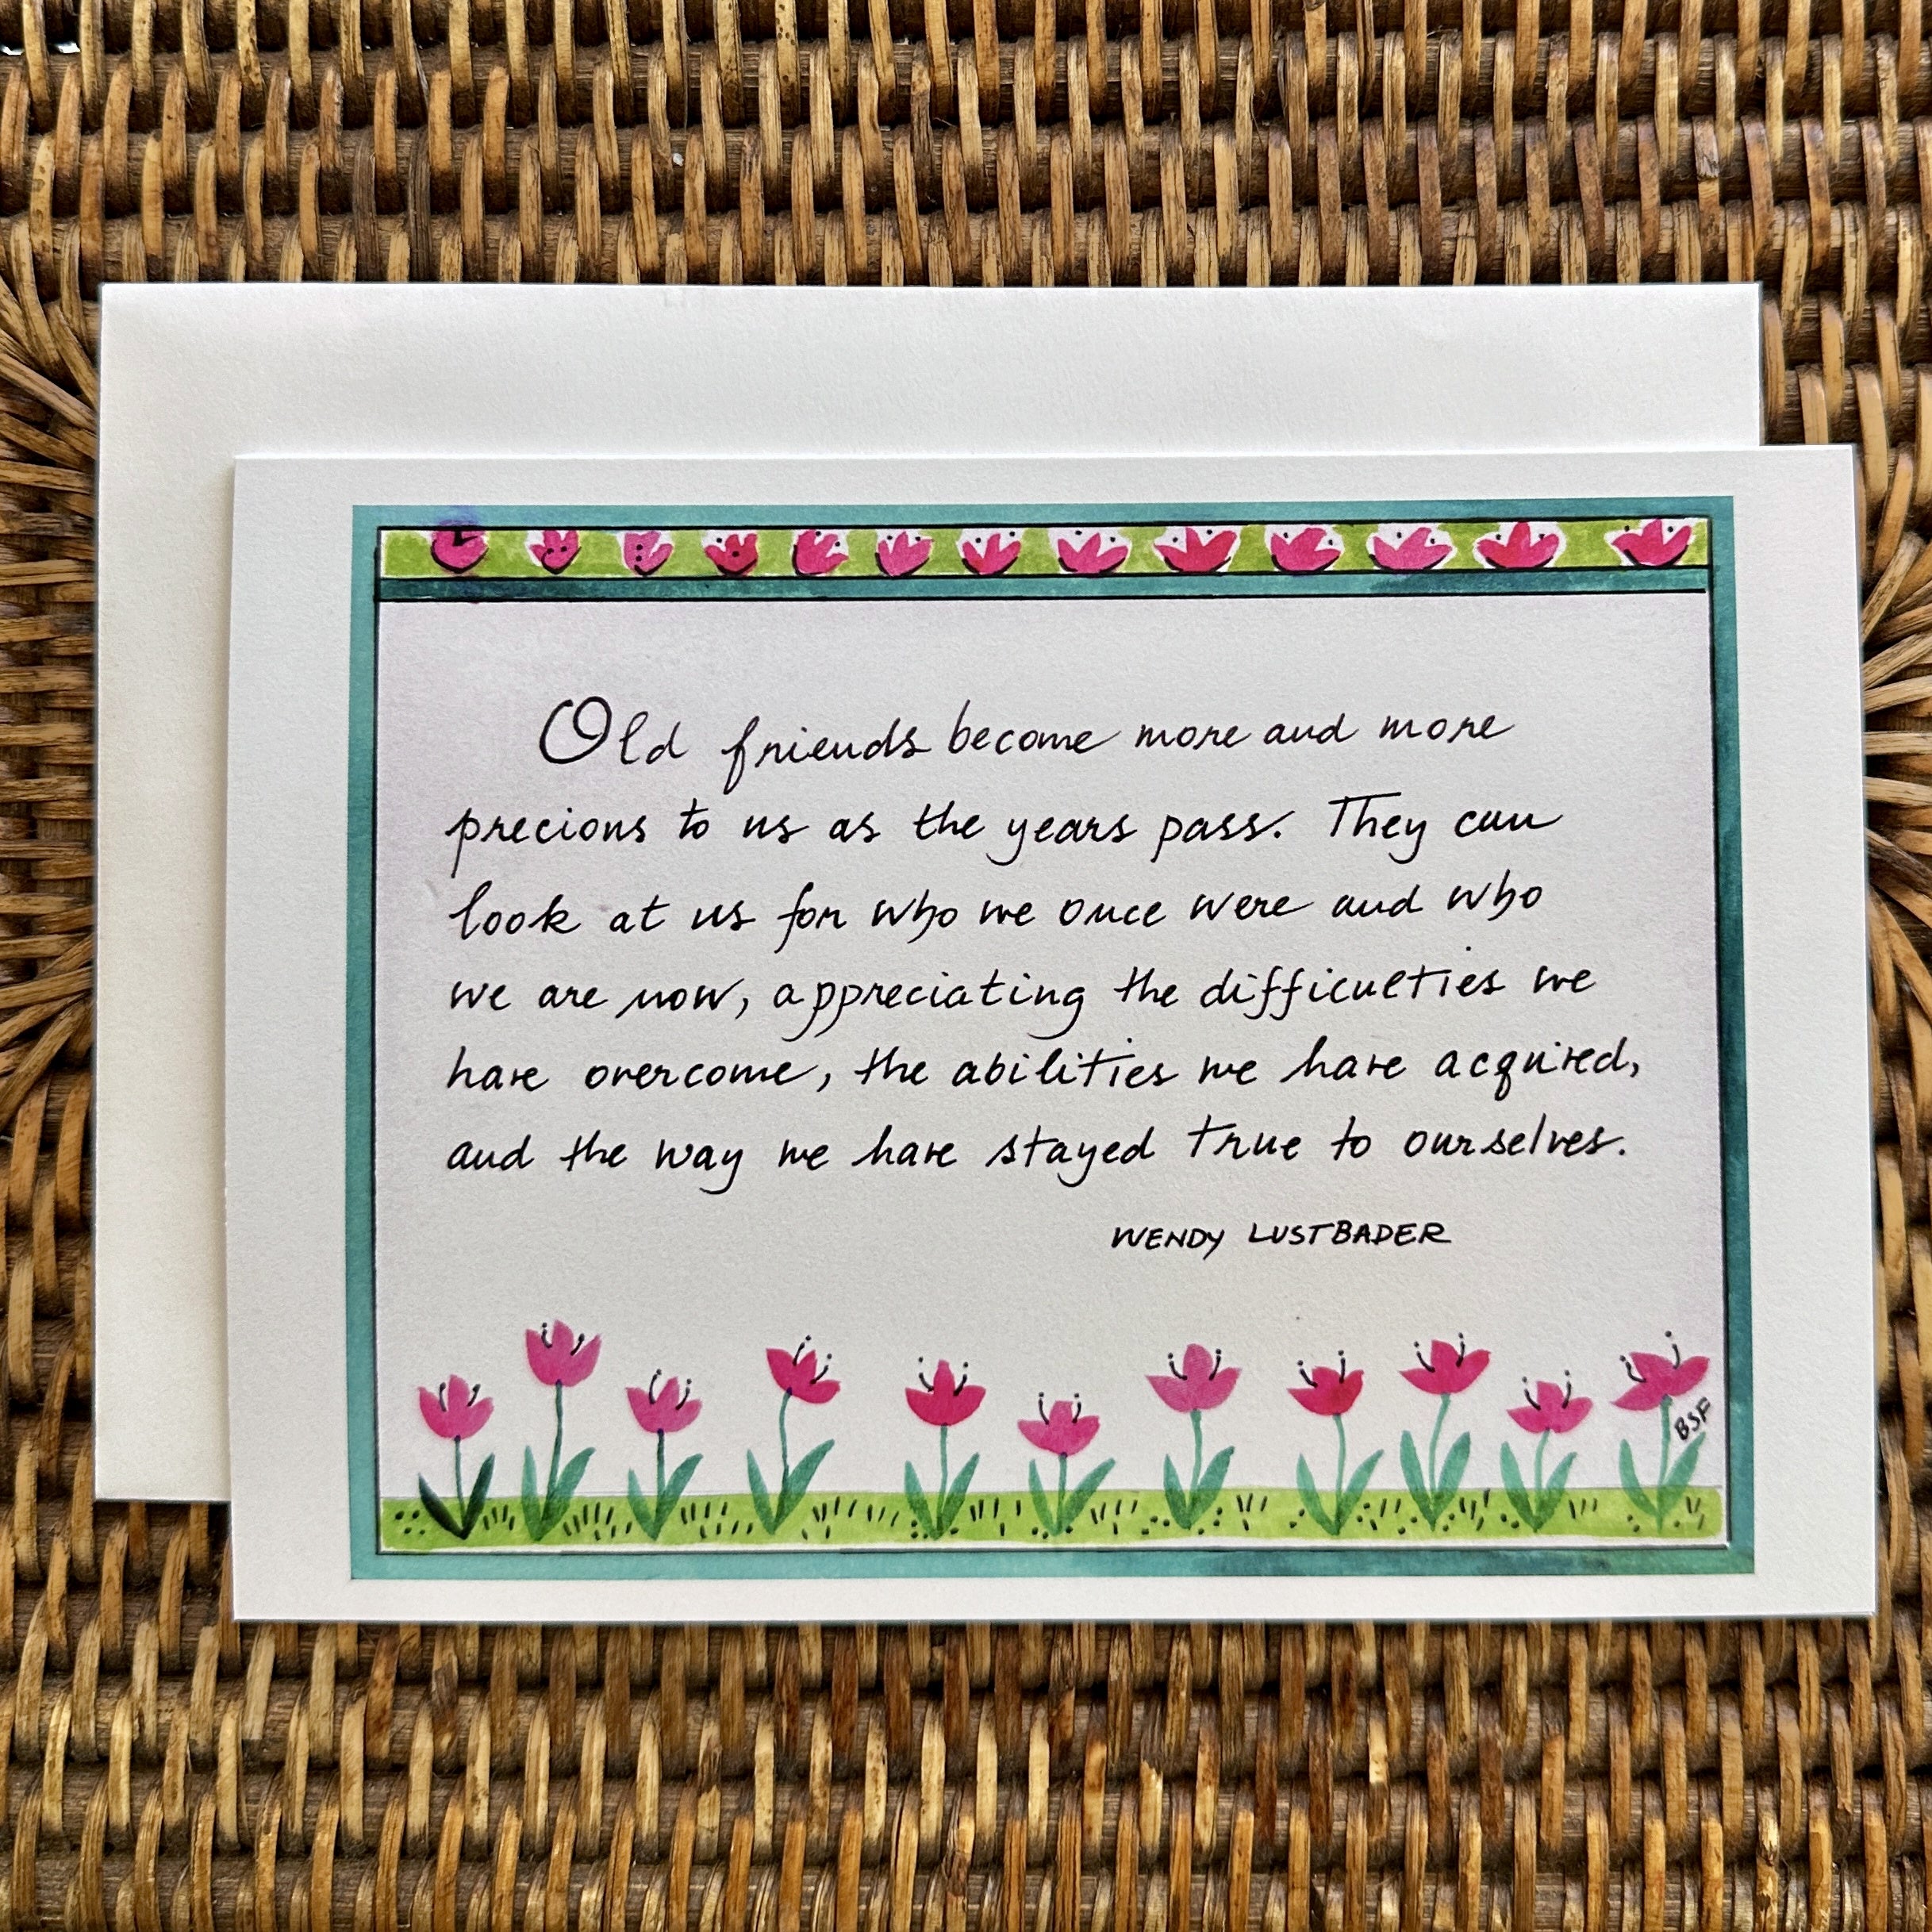 Old friends become more and more
precious to us as the years pass. They can
look at us for who we once were and who
we are now, appreciating the difficulties we
have overcome, the abilities we have acquired,
and the way we have stayed true to ourselves.
WENDY LUSTBADER
BSF